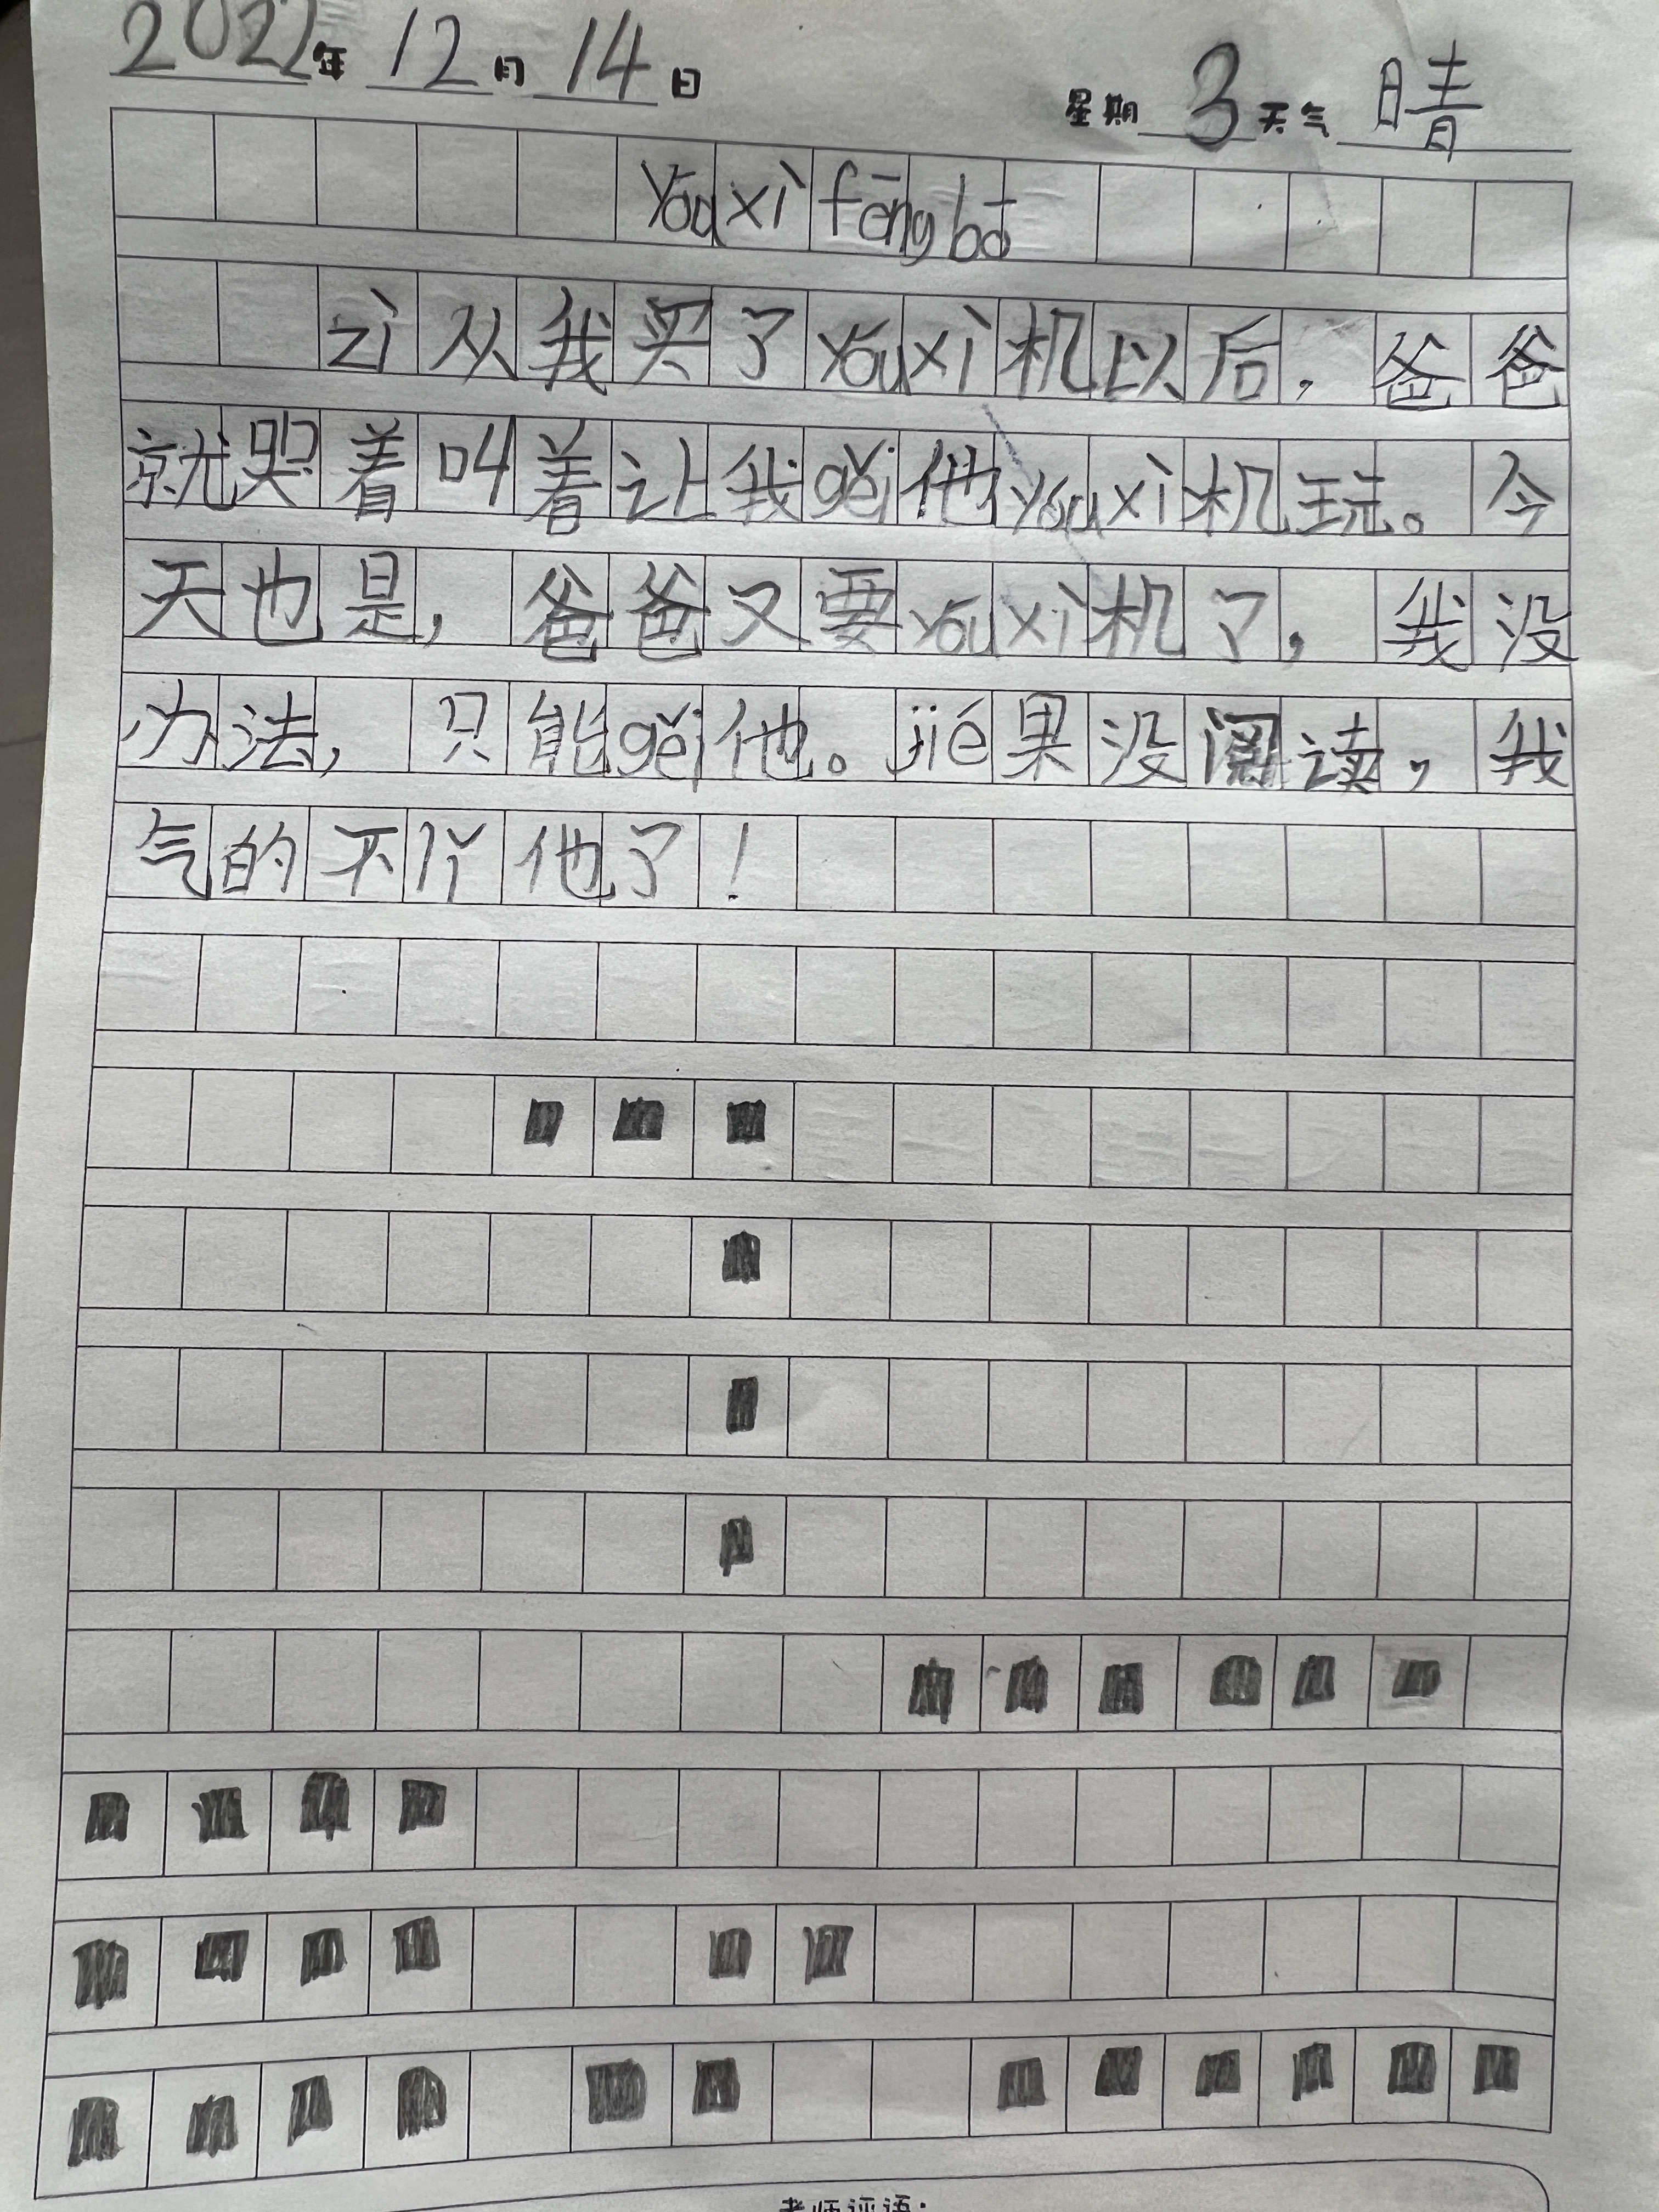 2022年12月14日 星期3天气晴
yóu xì fēng bō
zì从我买了yóu xì机以后，爸爸
就哭着叫着让我gěi他yóu xì机玩。今
天也是，爸爸又要yóu xì机了，我没
办法，只能gěi他。jié果没阅读，我
气的不行他了！
老师评语：